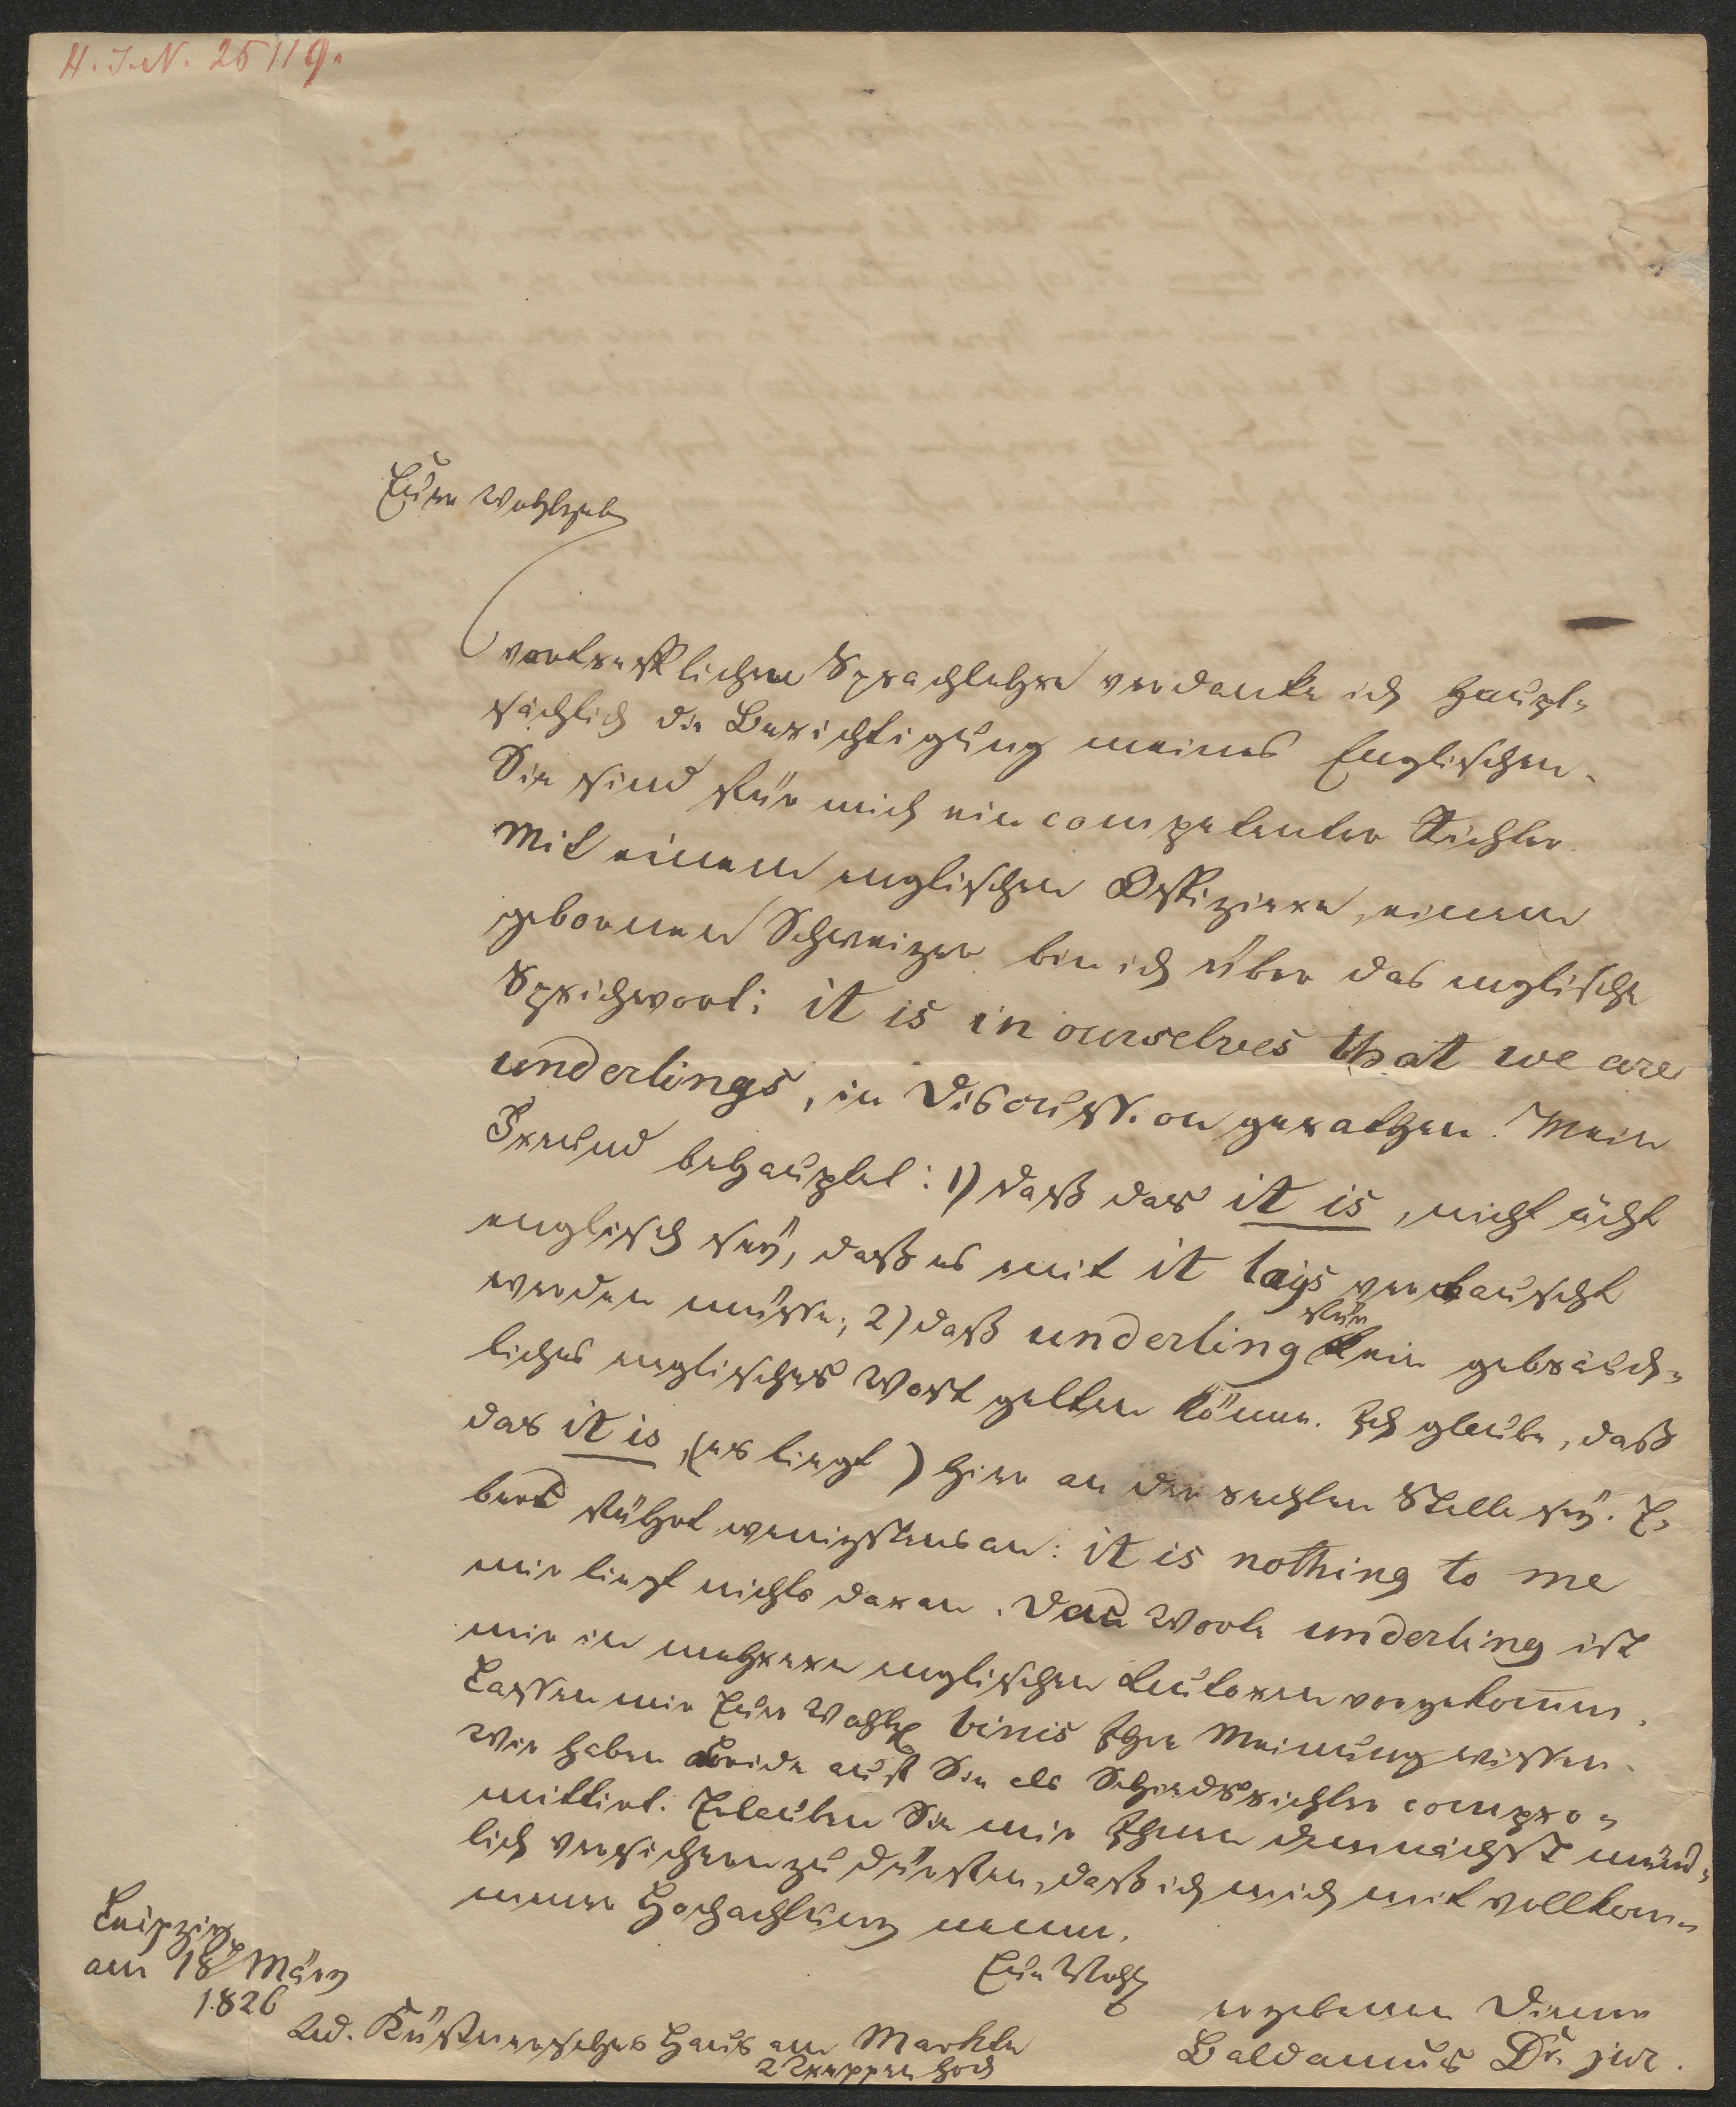 H. I. N. 25119.
Eurer Wohlgeb
vortrefflichen Sprachlehre verdanke ich haupt-
sächlich die Berichtigung meines Englischen.
Sie sind für mich ein competenter Richter.
Mit einem englischen Offiziere, einem
gebornen Schweizer bin ich über das englische
Sprichwort: it is in ourselves that we are
underlings, in Discussion gerathen. Mein
Freund behauptet: 1) daß das it is, nicht ächt
englisch sey, daß es mit it lays vertauscht
werden müsse; 2) daß underling für kein gebräuch-
liches englisches Wort gelten könne. Ich glaube, daß
das it is, (es liegt) hier an der rechten Stelle sey. E-
bert führt wenigstens an: it is nothing to me
mir liegt nichts daran. Das Wort underling ist
mir in mehrere englischen Autoren vorgekommen.
Lassen mir Eure Wohlg binis Ihre Meinung wissen.
Wir haben beide auf Sie als Schiedsrichter compro-
mittirt. Erlauben Sie mir Ihnen demnächst münd-
lich versichern zu dürfen, daß ich mich mit vollkom-
mener Hochachtung nenne.
Eur Wohlg
ergebenen Diener
Baldamus Dr. jur.
Leipzig
am 18 März
1826
Ad. Küstnersches Haus am Markte
2 Treppen hoch